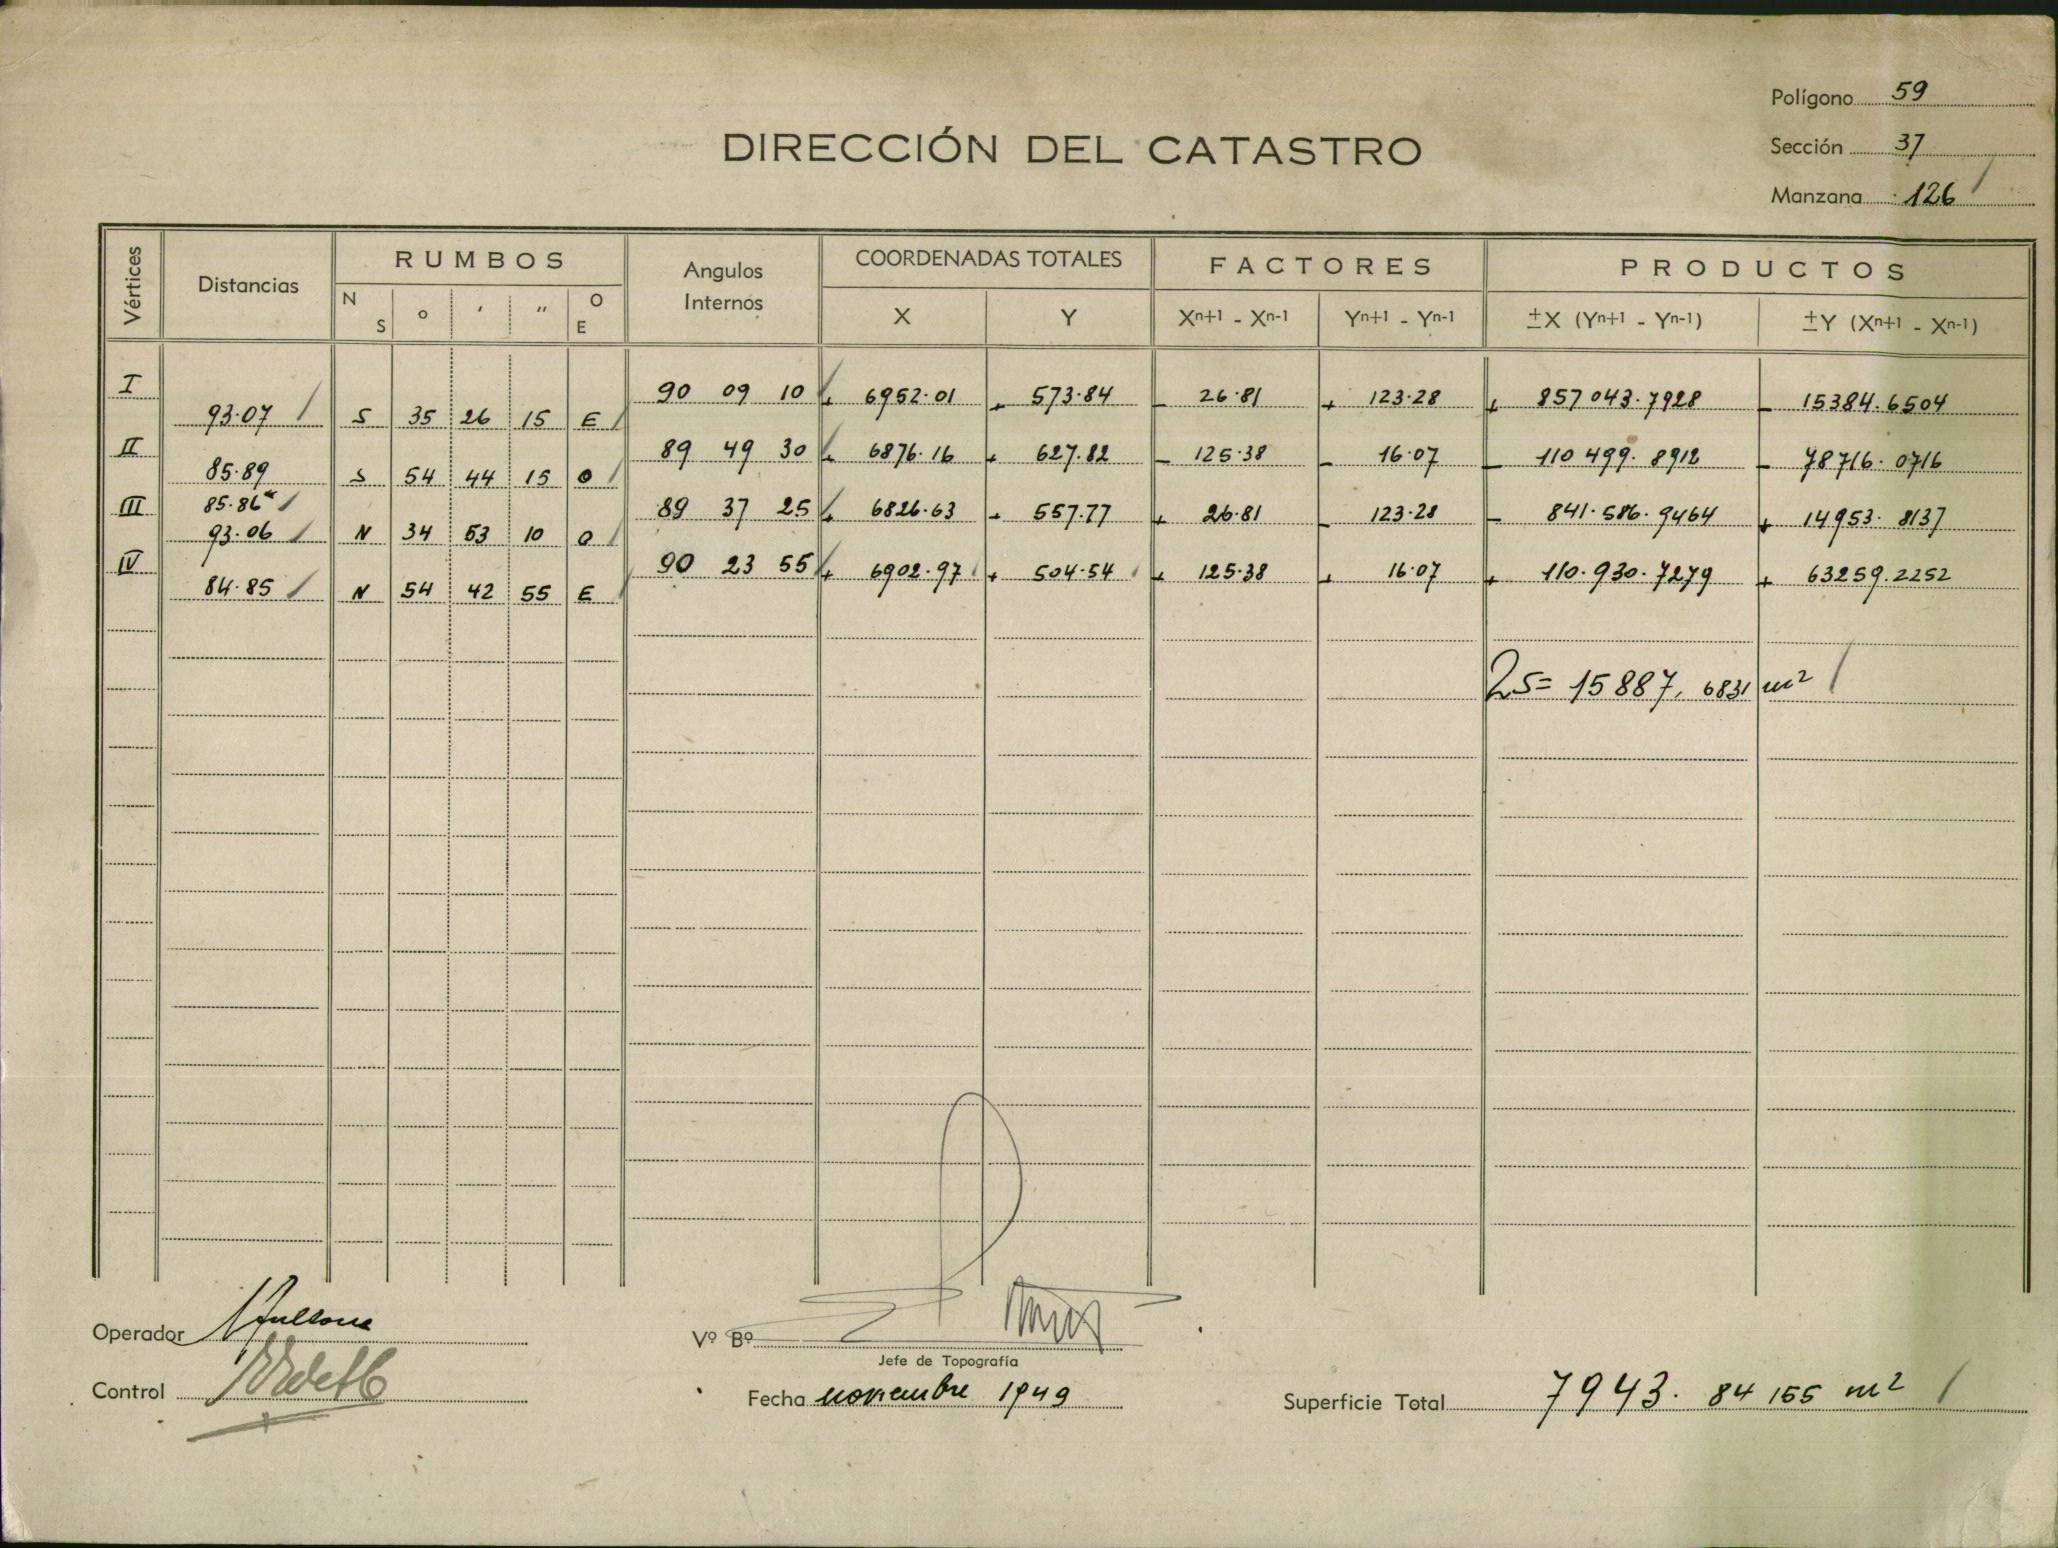 Polígono 59
DIRECCIÓN DEL CATASTRO
Sección 37
Manzana 126
Vértices Distancias RUMBOS N S ° ′ ″ O E Angulos Internos COORDENADAS TOTALES X Y FACTORES Xn+1 - Xn-1 Yn+1 - Yn-1 PRODUCTOS ±X (Yn+1 - Yn-1) ±Y (Xn+1 - Xn-1)
I 90 09 10 + 6952.01 + 573.84 - 26.81 + 123.28 + 857043.7928 - 15384.6504
93.07 S 35 26 15 E
II 89 49 30 + 6876.16 + 627.82 - 125.38 - 16.07 - 110499.8912 - 78716.0716
85.89 S 54 44 15 O
85.86
III 89 37 25 + 6826.63 + 557.77 + 26.81 - 123.28 - 841.586.9464 + 14953.8137
93.06 N 34 53 10 O
IV 90 23 55 + 6902.97 + 504.54 + 125.38 + 16.07 + 110.930.7279 + 63259.2252
84.85 N 54 42 55 E
2S= 15887,6831 m²
Operador
Vº Bº
Jefe de Topografía
Control
Fecha noviembre 1949
Superficie Total 7943.84155 m²